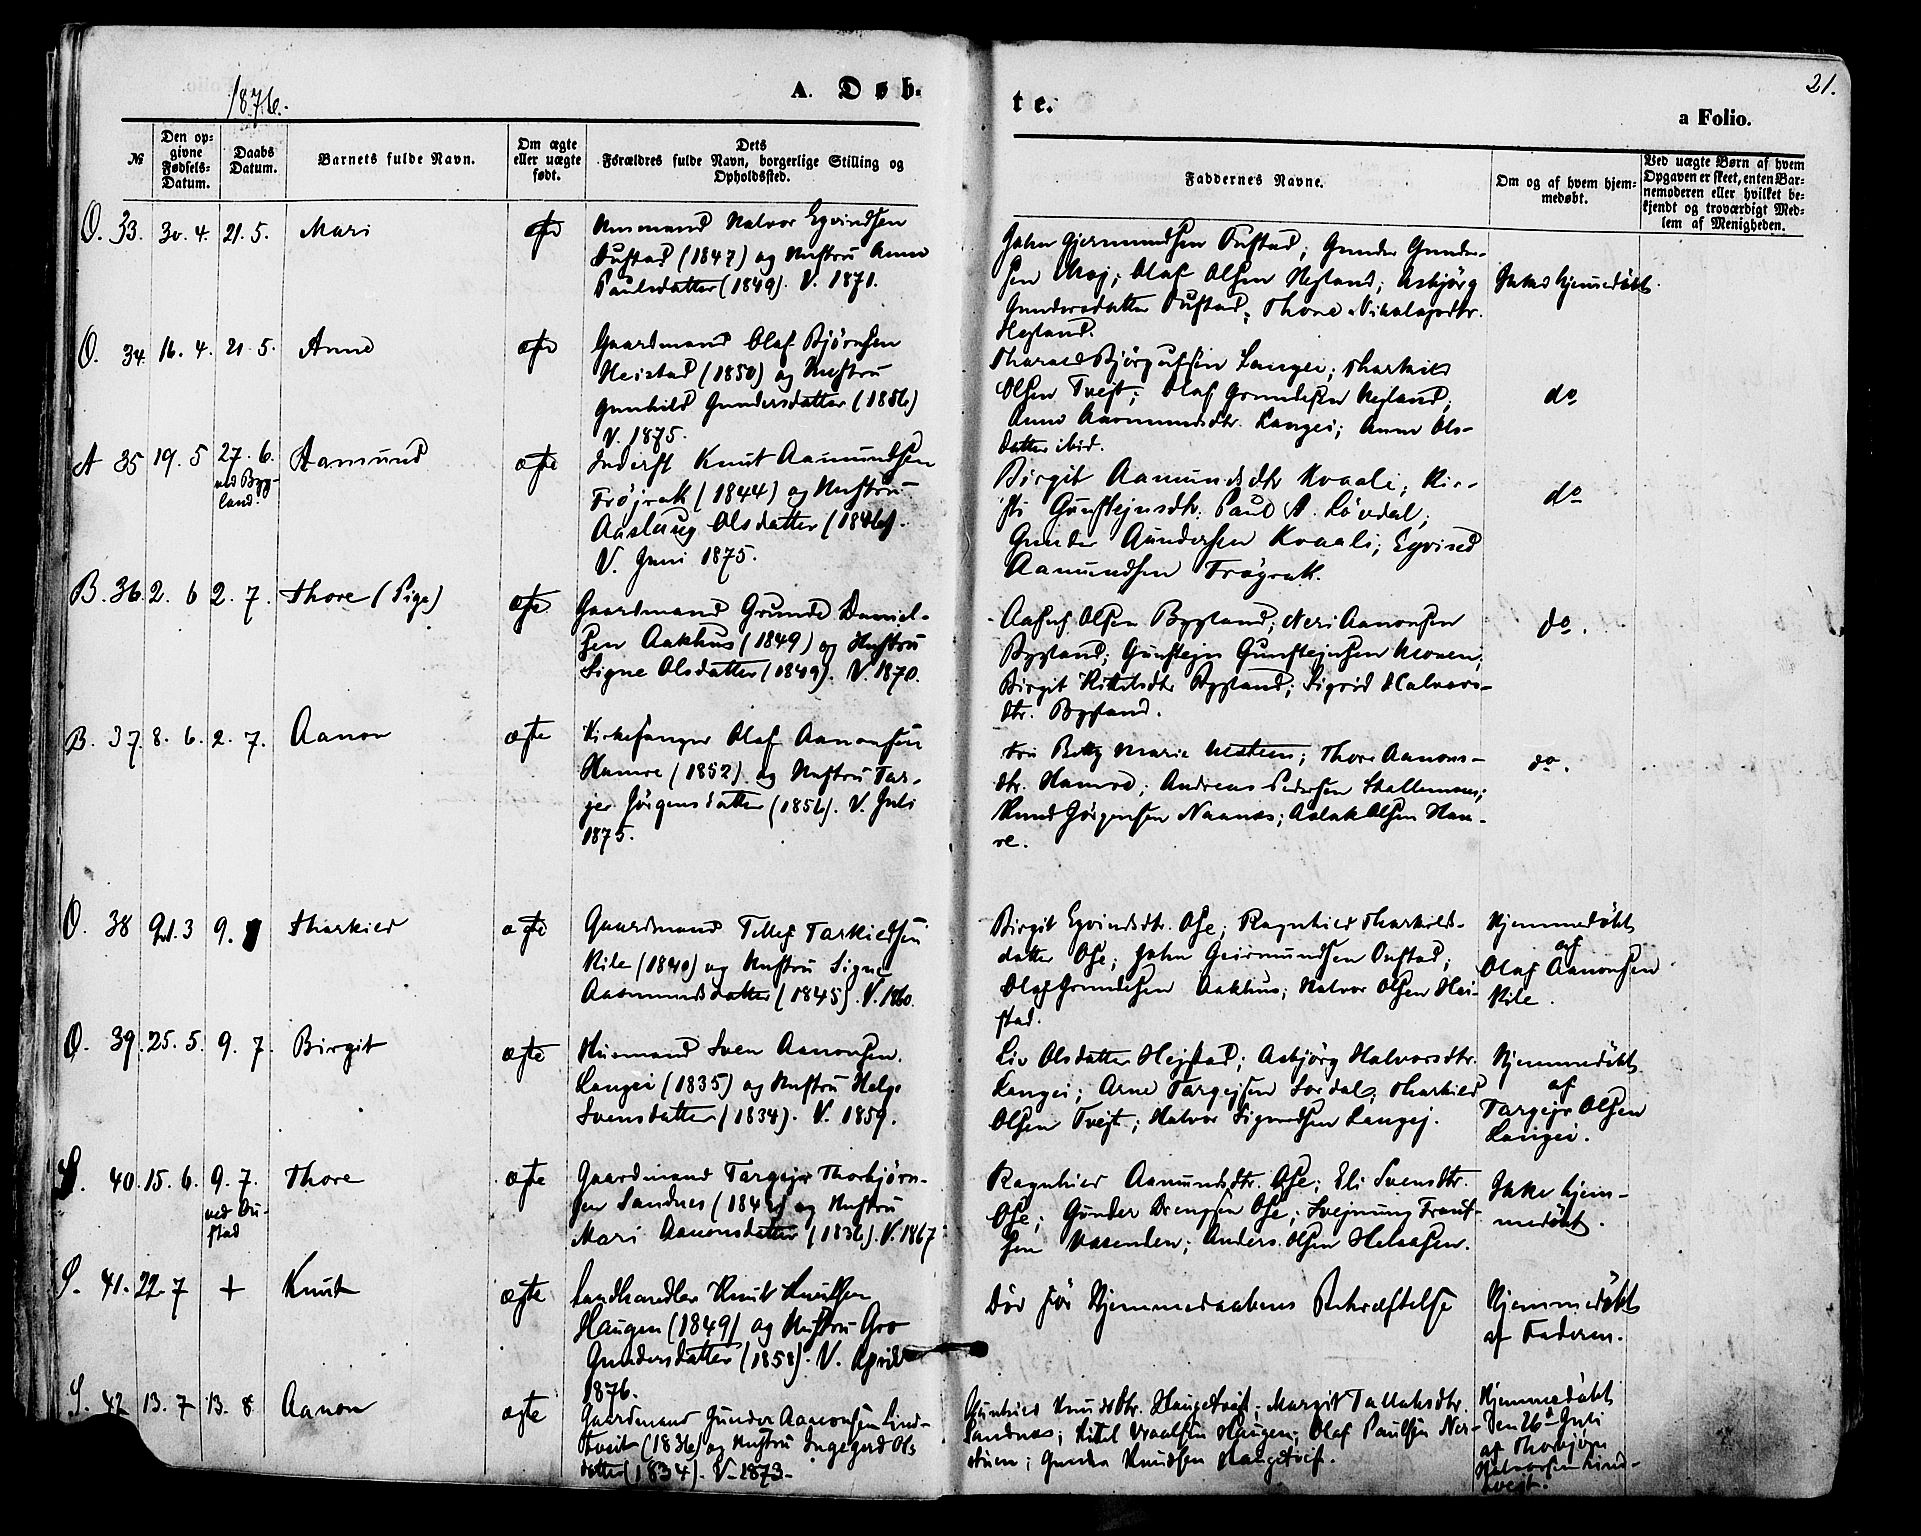 1876.
A. Døb-
te.
21.
a Folio.
№
Den op-
givne
Fødsels-
Datum.
Daabs
Datum.
Barnets fulde Navn.
Om ægte
eller uægte
født.
Dets
Forældres fulde Navn, borgerlige Stilling og
Opholdssted.
Faddernes Navne.
Om og af hvem hjem-
medøbt.
Ved uægte Børn af hvem
Opgaven er skeet, enten Bar-
nemoderen eller hvilket be-
kjendt og troværdigt Med-
lem af Menigheden.
O. 33. 30. 4. 21. 5. Mari ægte
Huusmand Halvor Eyvindsen
Ousta​d (1847) og Hustru Anne
Paulsdatter (1849). V. 1871.
John Gjermundsen Oustad; Gunder Gunder-
sen Moj; Olaf Olsen Hegland; Asbjörg
Gundersdatter Oustad; Thore Nikolajsdtr.
Hegland.
Ikke hjemmedøbt.
O. 34. 16. 4. 21. 5. Anne ægte
Gaardmand Olaf Bjørnsen
Heistad (1850) og Hustru
Gunhild Gundersdatter (1856)
V. 1875.
Bjørgulfsen Langei; Tharkild
Olsen Tvejt; Olaf Grundesen Hegland;
Anne Aasmundsdtr. Langei; Anne Ols-
datter ibid.
do
A 35 19. 5 27. 6. ved Byg-
land. Aamund ægte
Inderst Knut Aamundsen
Frøjrak (1844) og Hustru
Aaslaug Olsdatter (1846).
V. Juni 1875.
Birgit Aamundsdtr Kvaale; Kir-
sti Gunstejnsdtr. Paul A. Løvdal;
Gunder Gundersen Kvaali; Eyvind
Aamundsen Frøyrak.
do
B. 36. 2. 6 2. 7. Thore (Pige) ægte
Gaardmand Grunde Daniel-
sen Aakhus (1849) og Hustru
Signe Olsdatter (1849). V. 1870.
Olsen Bygland; Neri Aanonsen
Bygland; Gunstejn Gunstejnsen Moren;
Birgit Kittelsdtr Bygland; Sigrid Halvors-
dtr. Bygland.
do.
B. 37. 8. 6. 2. 7. Aanon ægte
Kirkesanger Olaf Aanonsen
Hamre (1852) og Hustru Tar-
jer Jörgensdatter (1856). V. Juli
1875.
Fru Betty Marie; Thore Aanons-
dtr. Hamre; Andreas Pedersen Stallemoen;
Knud Jörgensen Naanes; Aslak Olsen Ham-
re.
do.
O. 38 3 9. Tharkild ægte
Gaardmand Tellef Tarkildsen
Rike (1840) og Hustru Signe
Aasmundsdatter (1845). V. 1860.
Birgit Eyvindsdtr. Ose; Ragnhild Tharkilds-
datter Ose; John Geirmundsen Oustad;
Olaf Grundesen Aakhus; Halvor Olsen Hei-
stad.
Hjemmedøbt
af
Olaf Aanonsen
Rike.
O. 39. 25. 5. 9. 7. Birgit ægte
Husmand Sven Aanonsen
Langei (1835) og Hustru Helge
Svensdatter (1834). V. 1859.
Liv Olsdatter Hejstad; Asbjörg Halvorsdtr.
Langei; Arne Targejsen Lordal; Tharkild
Olsen Tvejt; Halvor Sigurdsen Langej.
Hjemmedøbt
af
Targejr Olsen
Langei.
S. 40. 15. 6. 9. 7.
ved Ou-
stad Thore ægte
Gaardmand Targejr Thorbjørn-
sen Sandnes og Hustru
Mari Aanonsdatter (1836). V. 1867
Ragnhild Aamundsdtr. Ose; Eli Svensdtr.
Ose; Gunder Drengsen Ose; Svejnung
sen Vasenden; Anders Olsen Helaasen.
Ikke hjem-
medøbt.
S. 41. 22. 7 + Knut ægte
Landhandler Knut Knutsen
Haugen (1849) og Hustru Gro
Gundersdatter (1858). V. April
1876.
Død før Hjemmedaabens Bekræftelse
Hjemmedøbt
af Faderen.
S. 42 13. 7 13. 8 Aanon ægte
Gaardmand Gunder Aanonsen Lind-
tveit (1836) og Hustru Ingegerd Ols
datter (1834). V. 1873.
Gunhild Knudsdtr. Haugetvejt; Margit Tallaksdtr.
Sandnes; Kitel Haugen; Olaf Paulsen Ner-
stuen; Gunder Knudsen Haugetvejt.
Hjemmedøbt
den 26 Juli
af Thorbjørn
Halvorsen Lind-
tvejt.